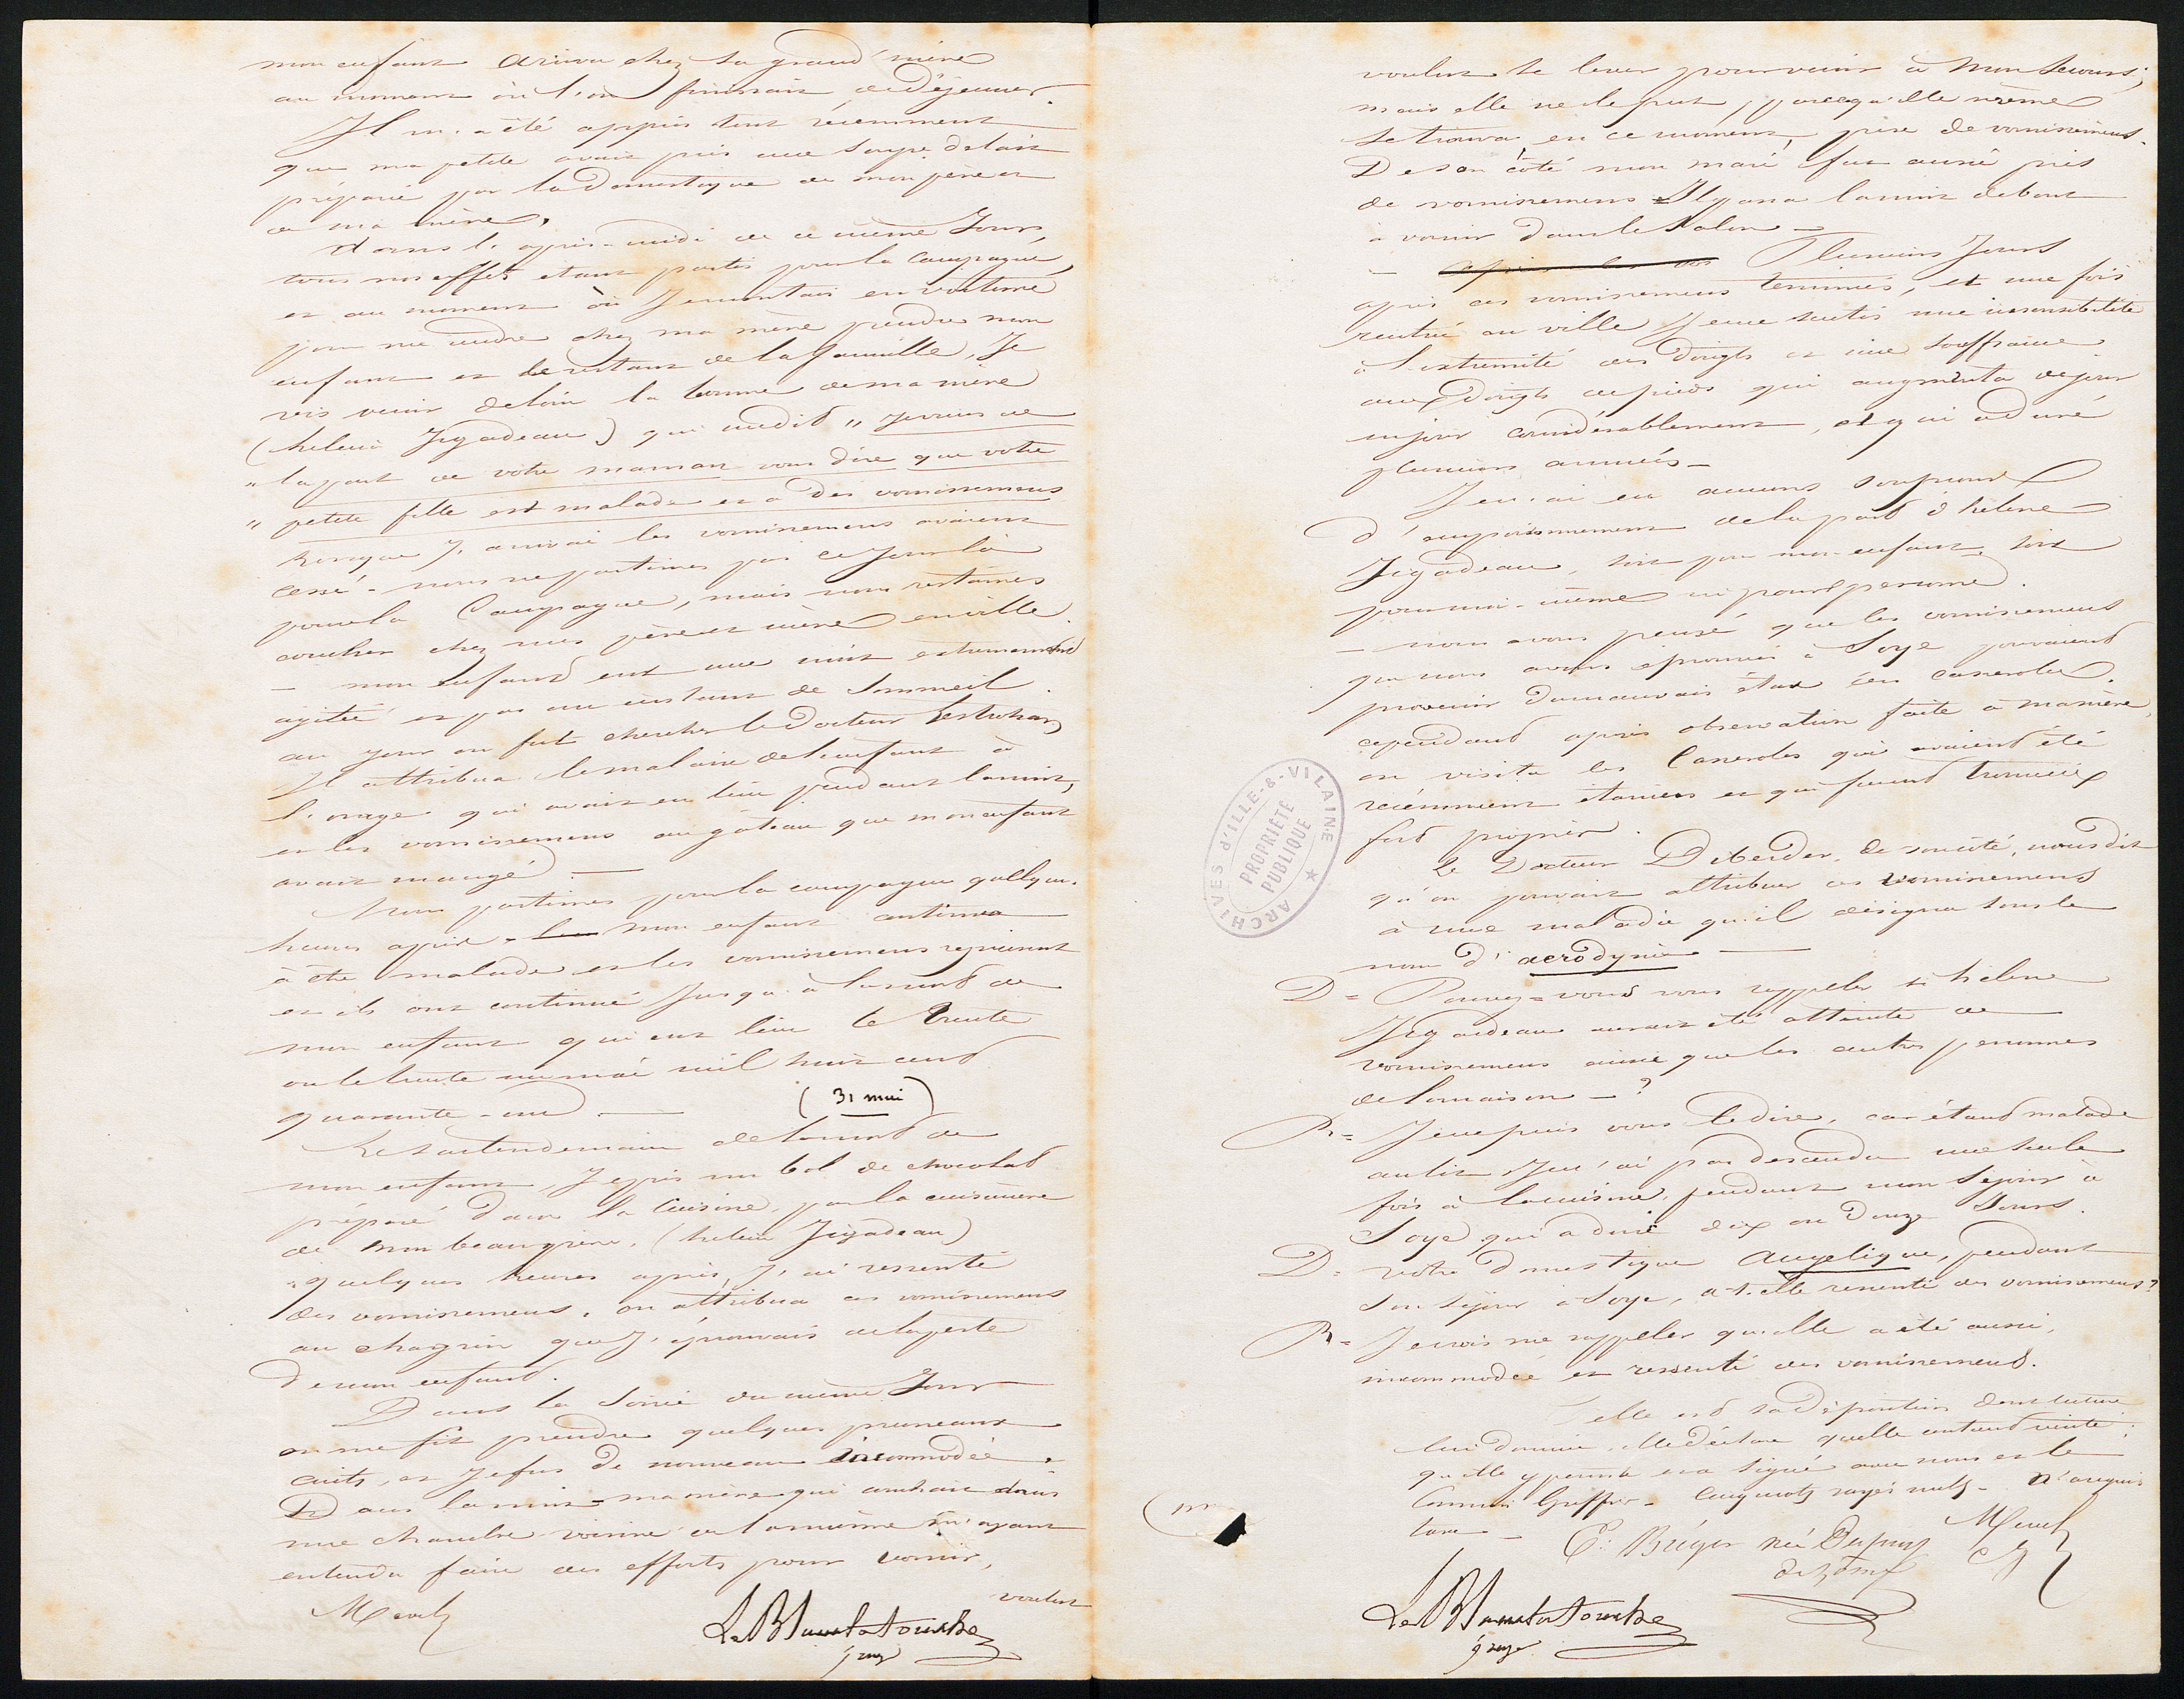 mon enfant arriva chez sa grand'mère
au moment où l'on finissait de déjeuner.
Il m'a été appris tout récemment
que ma petite avait pris une soupe de lait
préparée par la domestique de mon père et
de ma mère.
dans l'après-midi de ce même Jour,
tous nos effets étant partis pour la Campagne,
et au moment où Je montais en voiture
pour me rendre chez ma mère prendre mon
enfant et le restant de la famille, Je
vis venir de loin la bonne de ma mère
(helene Jégadeau) qui me dit " Je viens de
" la part de votre maman vous dire que votre
" petite fille est malade et a des vomissemens
Lorsque J'arrivai les vomissemens avaient
cessé - nous ne partimes pas ce Jour là
pour la Campagne, mais nous restâmes
coucher chez mes père et mère en ville.
- mon Enfant eut une nuit extrêmement
agitée et pas un instant de Sommeil.
au jour on fut chercher le Docteur Lestrohan
Il attribua le malaise de l'enfant à
l'orage qui avait eu lieu pendant la nuit,
et les vomissemens au gâteau que mon enfant
avait mangé. —
Nous partimes pour la campagne quelques
heures après - mon enfant continua
à être malade et les vomissemens reprirent
et ils ont continué Jusqu'à la mort de
mon enfant qui eut lieu le trente
ou le trente un mai mil huit cent
quarante-un — (31 mai)
Le surlendemain de la mort de
mon enfant, Je pris un bol de chocolat
préparé dans la Cuisine, par la cuisinière
de mon beau père, (helene Jégadeau)
quelques heures après, J'ai ressenti
des vomissemens. on attribua ces vomissemens
au chagrin que J'éprouvais de la perte
de mon enfant.
Dans la Soirée du même Jour
on me fit prendre quelques pruneaux
cuits, et Je fus de nouveau incommodée.
Dans la nuit - ma mère qui couchait dans
une chambre voisine de la mienne m'ayant
entendu faire des efforts pour vomir,
voulut
voulut se lever pour venir à mon Secours;
mais elle ne le put, parcequ'elle même
se trouva en ce moment prise de vomissemens.
De son côté mon mari fut aussi pris
de vomissemens Il passa la nuit debout
à vomir dans le Salon —
- Plusieurs Jours
après ces vomissemens terminés, et une fois
rentrée en ville Je me sentis une insensibilité
à l'extrémité des Doigts et une Souffrance
aux Doigts de pieds qui augmenta de jour
en jour considérablement, et qui a duré
plusieurs années —
Je n'ai eu aucuns soupçons
d'empoisonnement de la part d'helene
Jégadeau, soit pour mon enfant, soit
pour moi-même ni pour personne.
- nous avons pensé que les vomissemens
que nous avons éprouvés à Soye pouvaient
provenir du mauvais état des casseroles.
cependant après observation faite à ma mère,
on visita les Casseroles qui avaient été
récemment étamées et qui furent trouvées
fort propres.
le Docteur Deberder, de son côté, nous dit
qu'on pouvait attribuer ces vomissemens
à une maladie qu'il désigna sous le
nom d'acrodynie —
D = Pouvez-vous vous rappeler si helene
Jégadeau aurait été atteinte de
vomissemens ainsi que les autres personnes
de la maison — ?
R = Je ne puis vous le dire, car étant malade
au lit Je n'ai pas descendu une seule
fois à la cuisine, pendant mon Séjour à
Soye qui a duré dix ou Douze Jours.
D = votre domestique Angélique, pendant
son séjour à Soye, a-t-elle ressenti des vomissemens?
R = Je crois me rappeler qu'elle a été aussi,
incommodée et ressenti des vomissemens.
telle est sa déposition dont lecture
lui donnée, elle déclare qu'elle contient vérité;
qu'elle y persiste et a signé avec nous et le
Commis Greffier - Cinq mots rayés nuls - N'a requis
taxe —
E: Bréger née Dupuy
de Lôme
ARCHIVES d'ILLE-&-VILAINE
PROPRIÉTÉ
PUBLIQUE